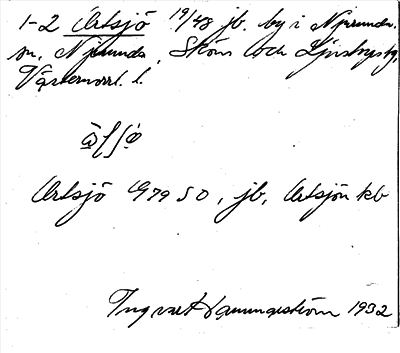 1-2 Artsjö 19/48 jb. by i Njurunda
sn, Njurunda, Sköns och Ljustorps tg,
Västernorrl. l.
Artsjö G 79 SO, jb, Artsjön kb
Ingvart Vammgeström 1932